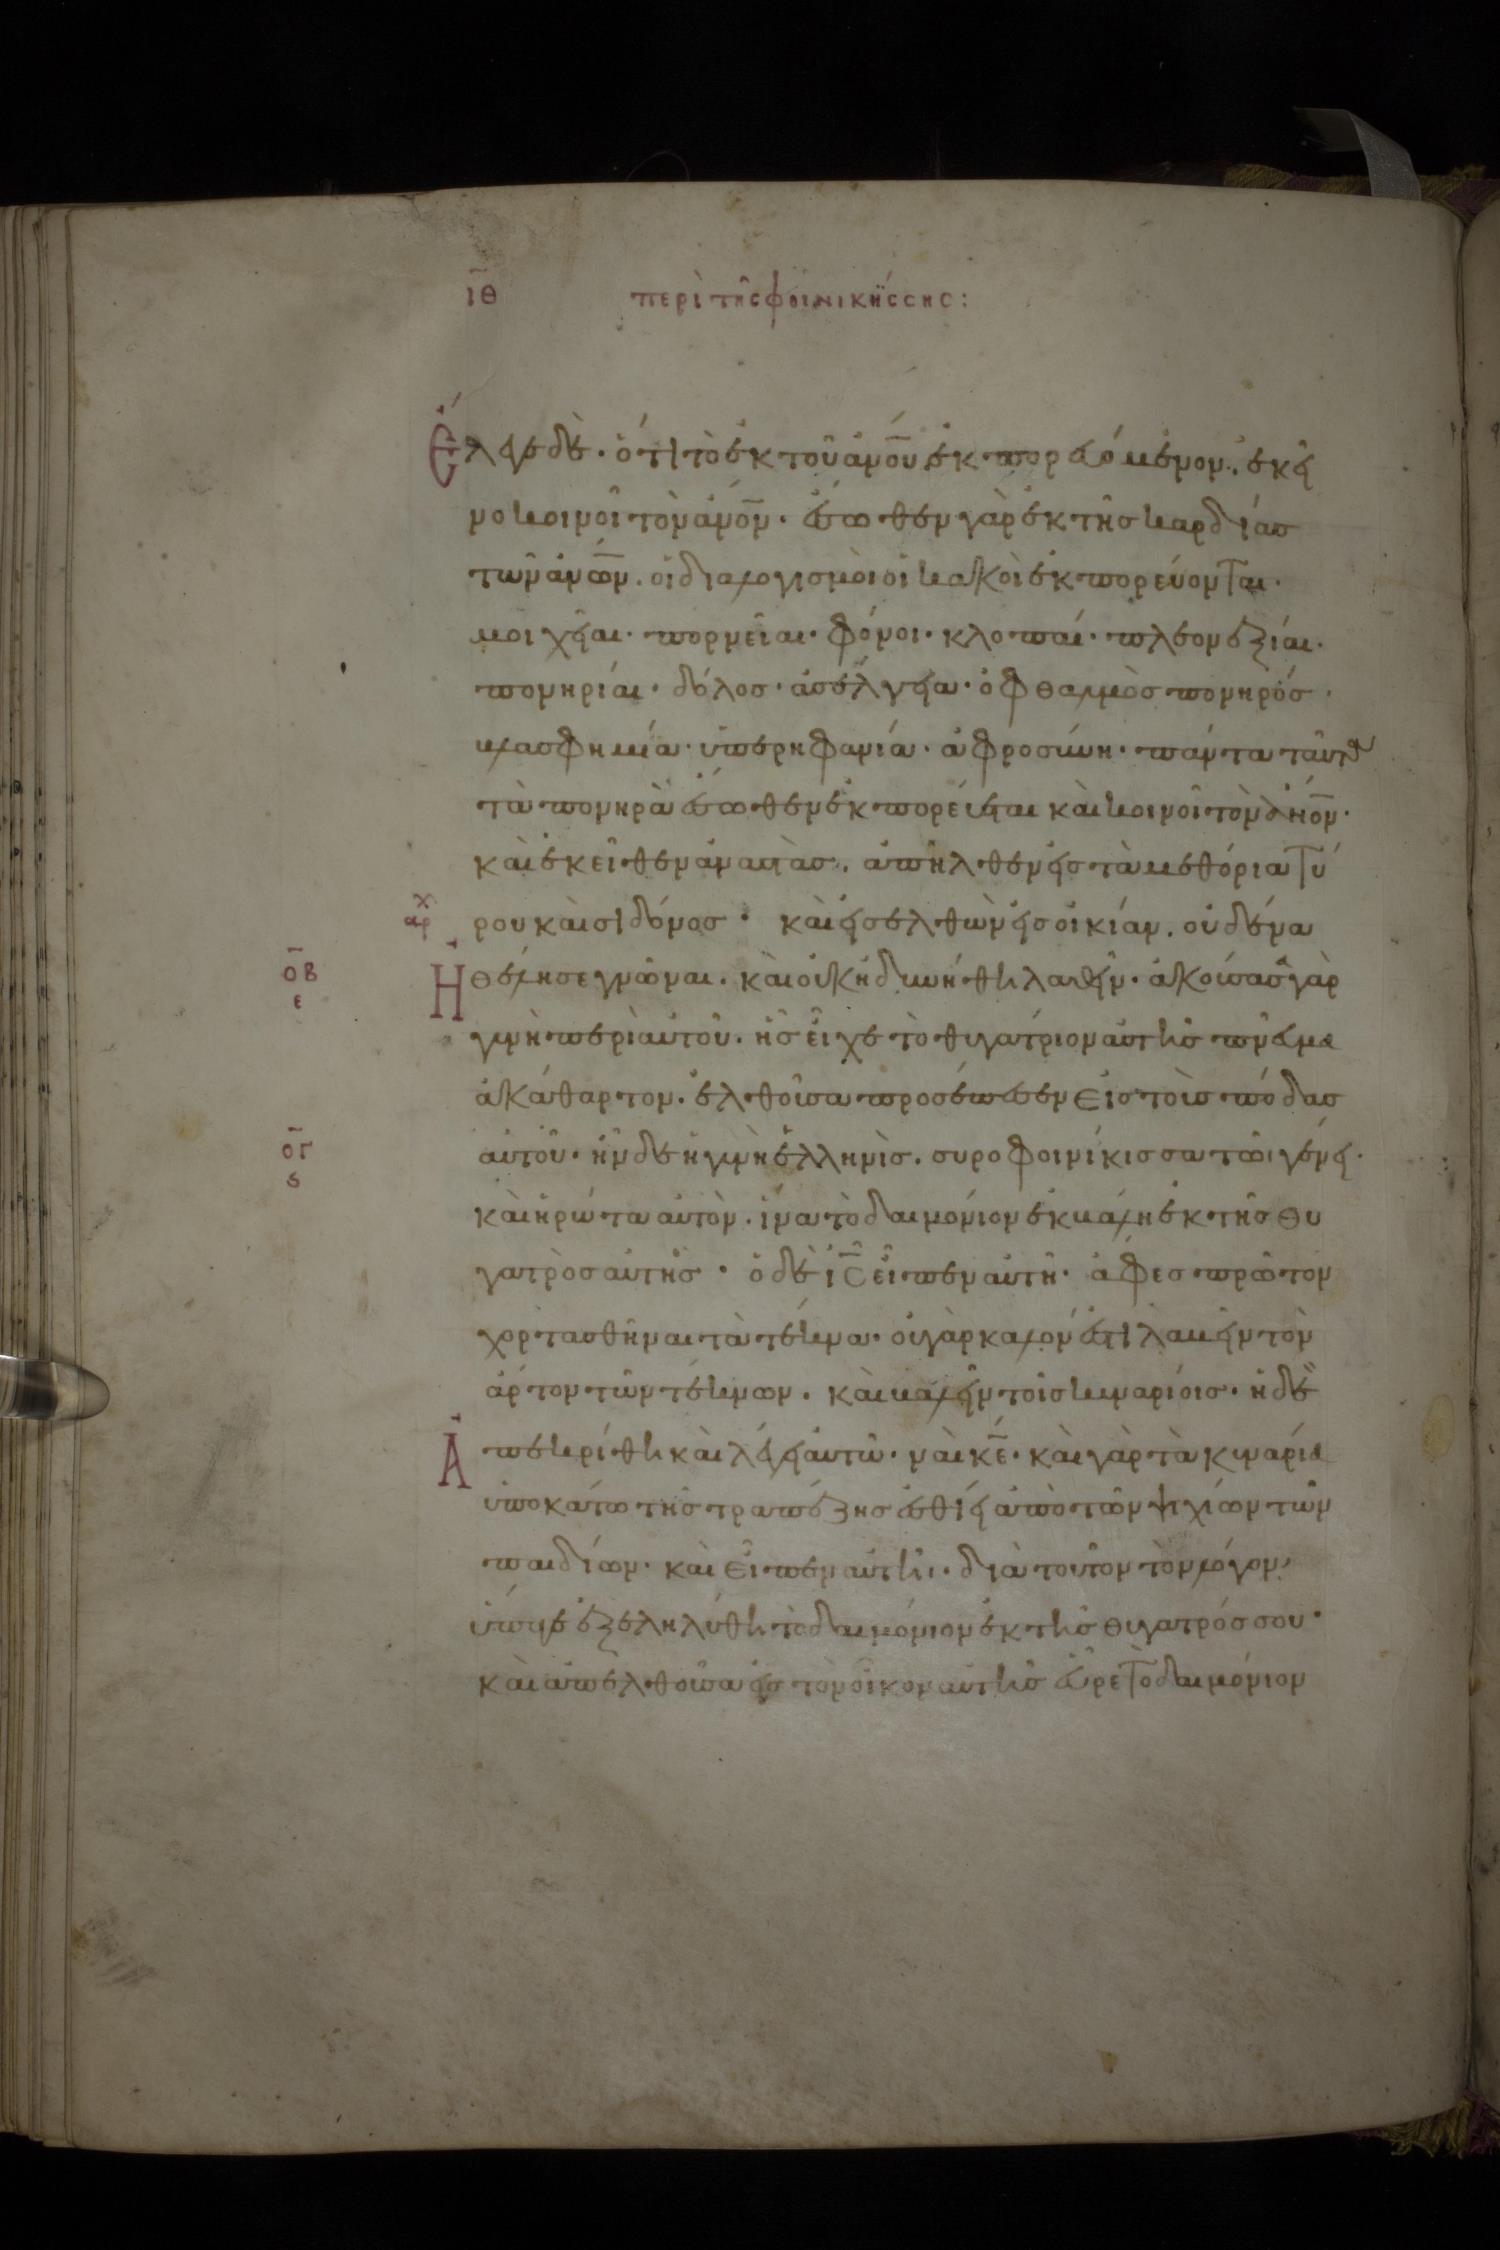 ιθ περὶ τῆς φοινικήσσης:
Ἔλεγε δὲ· ὅτι τὸ ἐκ τοῦ ἀνου ἐκπορευόμενον. ἐκεῖ
νο κοινοῖ τὸν ἀνον· ἔσωθεν γὰρ ἐκ τῆς καρδίας
τῶν ἀνων. οἱ διαλογισμοὶ οἱ κακοὶ ἐκπορεύονται·
μοιχεῖαι· πορνεῖαι· φόνοι· κλοπαί· πλεονεξίαι·
πονηρίαι· δόλος· ἀσέλγεια· ὀφθαλμὸς πονηρός·
βλασφημία· ὑπερηφανία· ἀφροσύνη· πάντα ταῦτα
τὰ πονηρὰ ἔσωθεν ἐκπορεύεται καὶ κοινοῖ τὸν ἀνον·
καὶ ἐκεῖθεν ἀναστὰς. ἀπῆλθεν εἰς τὰ μεθόρια Τύ
αρχ ρου καὶ σιδόνος· καὶ εἰσελθὼν εἰς οἰκίαν. οὐδένα
οβ ε Ηθέλησε γνῶναι. καὶ οὐκ ἠδυνήθη λαθεῖν· ἀκούσασα γὰρ
γυνὴ περὶ αὐτοῦ. ἧς εἶχε τὸ θυγάτριον αὐτῆς πνεῦμα
ἀκάθαρτον. ἐλθοῦσα προσέπεσεν εἰς τοὺς πόδας
ογ ς αὐτοῦ· ἦν δὲ ἡ γυνὴ ἑλληνὶς. συροφοινίκισσα τῶι γένει·
καὶ ἠρώτα αὐτὸν. ἵνα τὸ δαιμόνιον ἐκβάλη ἐκ τῆς θυ
γατρὸς αὐτῆς· ὁ δὲ ις εἶπεν αὐτῆ· ἄφες πρῶτον
χορτασθῆναι τὰ τέκνα· οὐ γὰρ καλόν ἐστι λαβεῖν τὸν
ἄρτον τῶν τέκνων. καὶ βαλεῖν τοῖς κυναρίοις· ἡ δὲ
Απεκρίθη καὶ λέγει αὐτῶ· ναὶ κε· καὶ γὰρ τὰ κυνάρια
ὑποκάτω τῆς τραπέζης ἐσθίει ἀπὸ τῶν ψιχίων τῶν
παιδίων· καὶ εἶπεν αὐτῆι· διὰ τοῦτον τὸν λόγον
ὕπαγε ἐξεληλύθη τὸ δαιμόνιον ἐκ τῆς θυγατρός σου·
καὶ ἀπελθοῦσα εἰς τὸν οἶκον αὐτῆς εὗρε τὸ δαιμόνιον